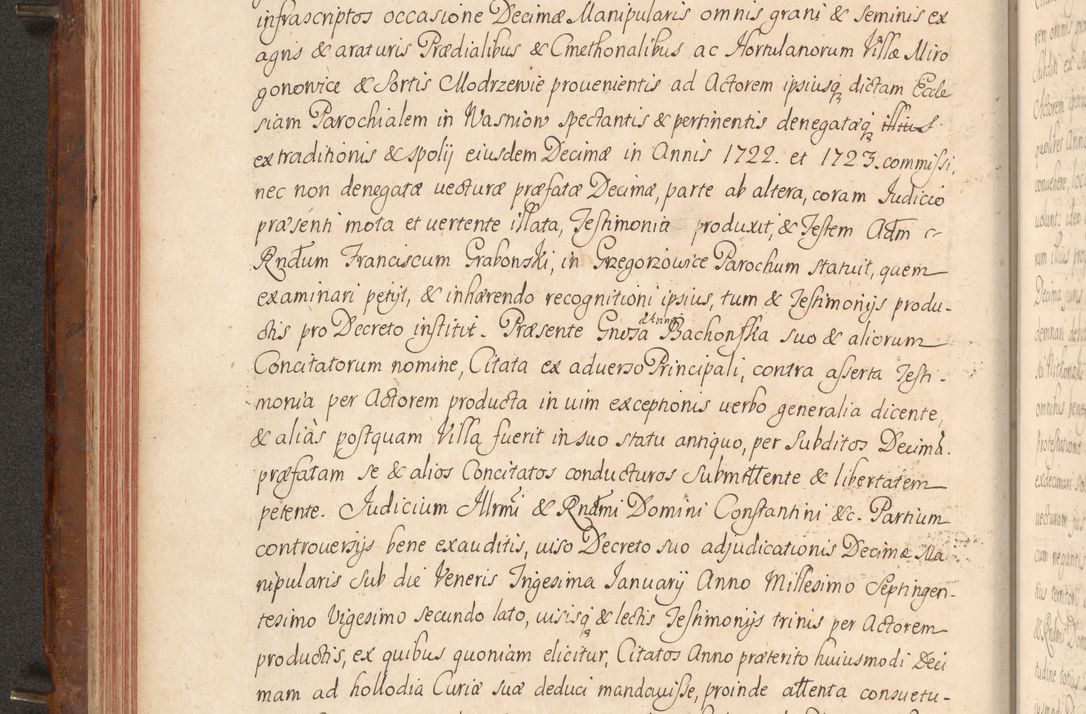 infrascriptos occasione Decimæ Manipularis omnis grani & seminis ex
agris & araturis Prædialibus & Cmethonalibus ac Hortulanorum Villæ Miro
gonowice & Sortis Modrzewie prouenientis ad Actorem ipsiusq dictam Eccle
siam Parochialem in Wasniow spectantis & pertinentis denegatæq illius
extraditionis & spolij eiusdem Decimæ in Annis 1722. et 1723. commissi,
nec non denegatæ uecturæ præfatæ Decimæ, parte ab altera, coram Judicio
præsenti mota et uertente illata, Testimonia produxit, & Testem Adm
Rndum Franciscum Grabonski, in Grzegorzowice Parochum statuit, quem
examinari petijt, & inhærendo recognitioni ipsius, tum & Testimonijs produ-
ctis pro Decreto institit. Præsente Gnosa Anna Bachonska suo & aliorum
Concitatorum nomine, Citata ex aduerso Principali, contra asserta Testi-
monia per Actorem producta in uim exceptionis uerbo generalia dicente,
& aliàs postquam Villa fuerit in suo statu antiquo, per Subditos Decimā
præfatam se & alios Concitatos conducturos Submittente & libertatem
petente. Judicium Illrmi & Rndmi Domini Constantini &c. Partium
controuersijs bene exauditis, uiso Decreto suo adjudicationis Decimæ Ma
nipularis sub die Veneris Trigesima Januarij Anno Millesimo Septingen-
tesimo Vigesimo secundo lato, uisisq & lectis Testimonijs trinis per Actorem
productis, ex quibus quoniam elicitur, Citatos Anno præterito huiusmodi Deci
mam ad hollodia Curiæ suæ deduci mandauisse, proinde attenta consuetu-